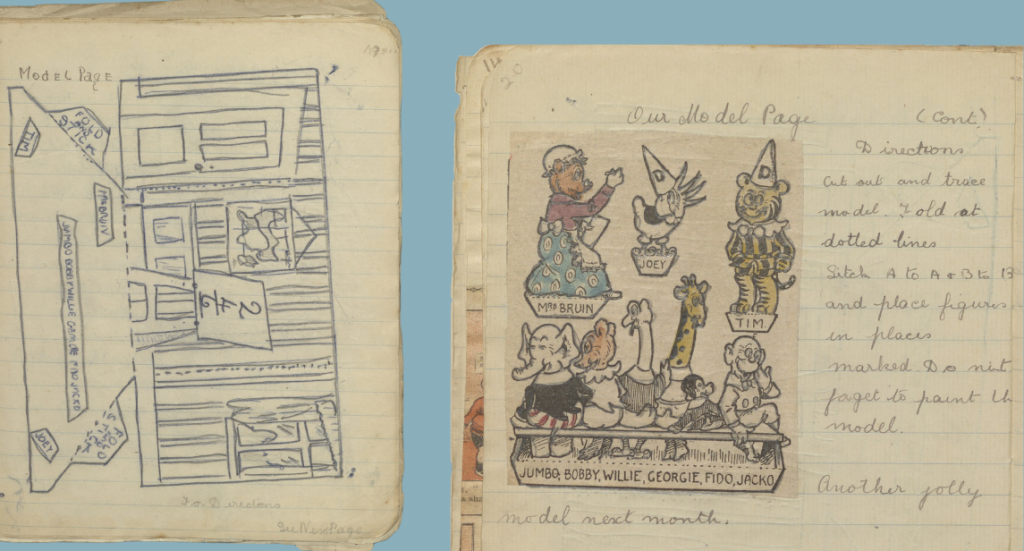 MODEL PAGE
FOLD AND STICK
TIM
MRS BRUIN
FOLD & STICK
JOEY
2
4/6
For Directons
See Next Page
20
Our Model Page (Cont)
Directions
Cut out and trace
model. Fold at
dotted lines
Stick A to A & B to B
and place figures
in places
marked Do not
forget to paint th
model.
D
D
JOEY
MRS BRUIN
TIM.
JUMBO, BOBBY, WILLIE, GEORGIE, FIDO, JACKO
Another jolly
model next month.